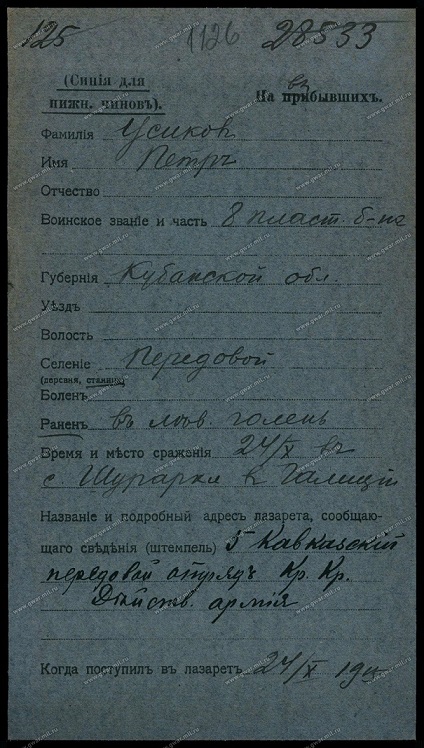 125 1126 28533
(Синія для
нижн. чиновъ).
На прибывшихъ.
въ
Фамилія Усиковъ
Имя Петръ
Отчество
Воинское званіе и часть 8 пласт. б-на
Губернія Кубанской обл.
Уѣздъ
Волость
Селеніе Передовой
(деревня, станица)
Боленъ
Раненъ въ голень
Время и мѣсто сраженія 24/X въ
с. Галиціи
Названіе и подробный адресъ лазарета, сообщаю-
щаго свѣдѣнія (штемпель) 5 Кавказскій
передовой отрядъ Кр. Кр.
Дѣйств. армія
Когда поступилъ въ лазаретъ 24/X
www.gwar.mil.ru